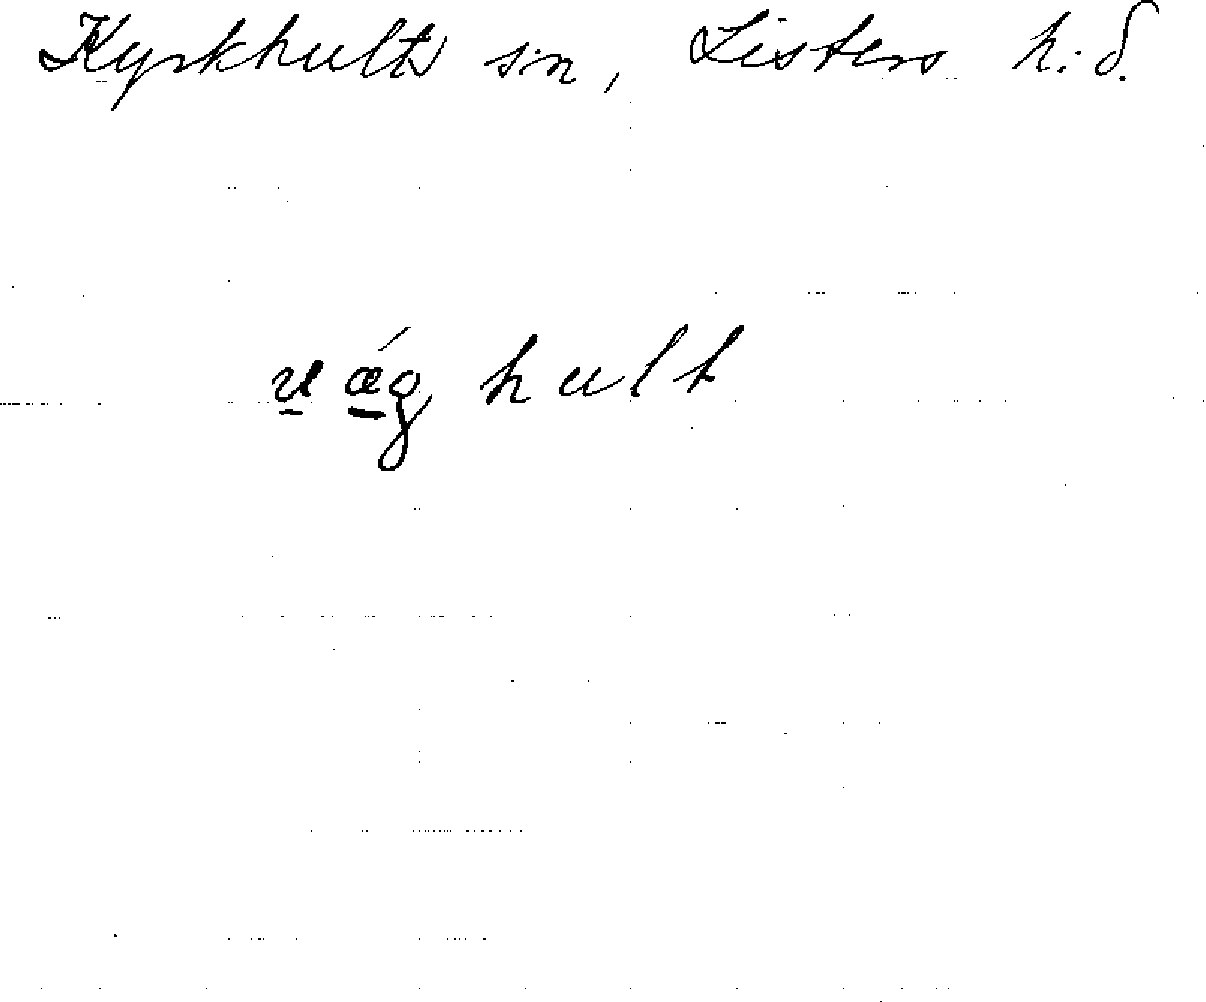 Kyrkhults s:n, Listers h:d.
vǽg hult